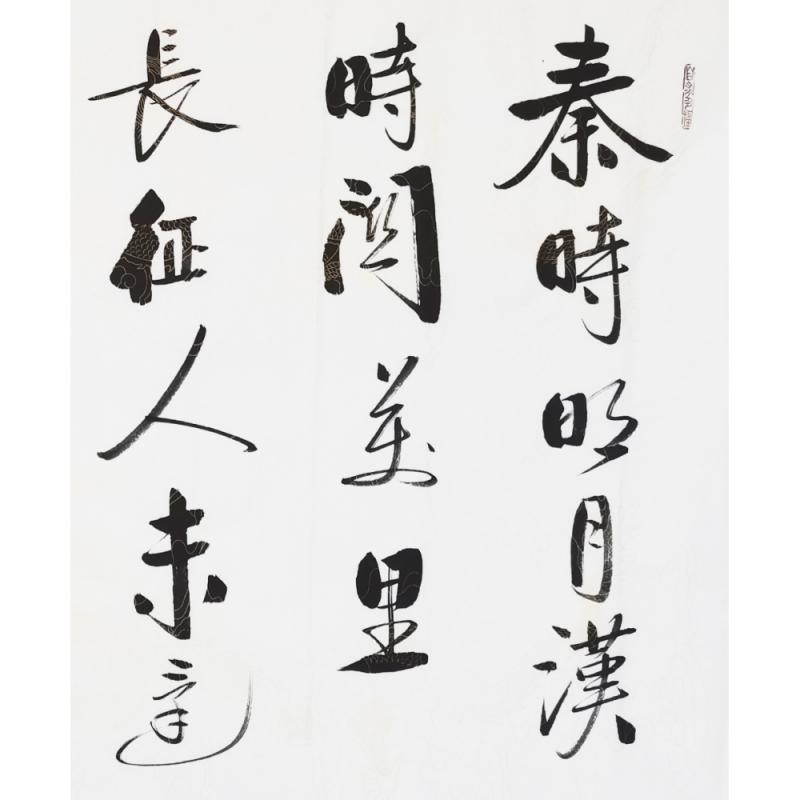 秦時明月漢
時関萬里
長征人未還